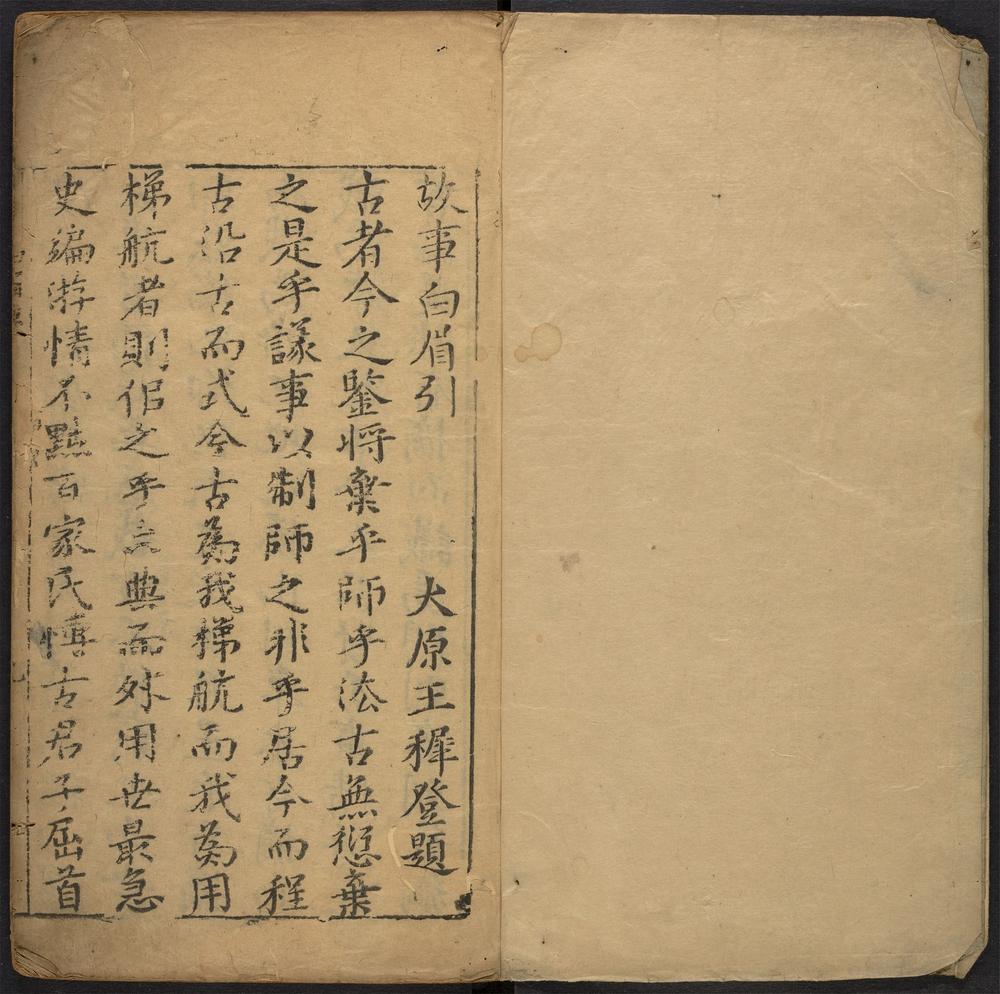 故事白眉引 大原王穉登題
古者今之鑒將棄乎師乎法古無愆棄
之是乎議事以制師之非乎居今而程
古沿古而式今古為我梯航而我為用
梯航者則佀之乎六典而外用世最急
史編游情不黜百家氏慎古君子屈首